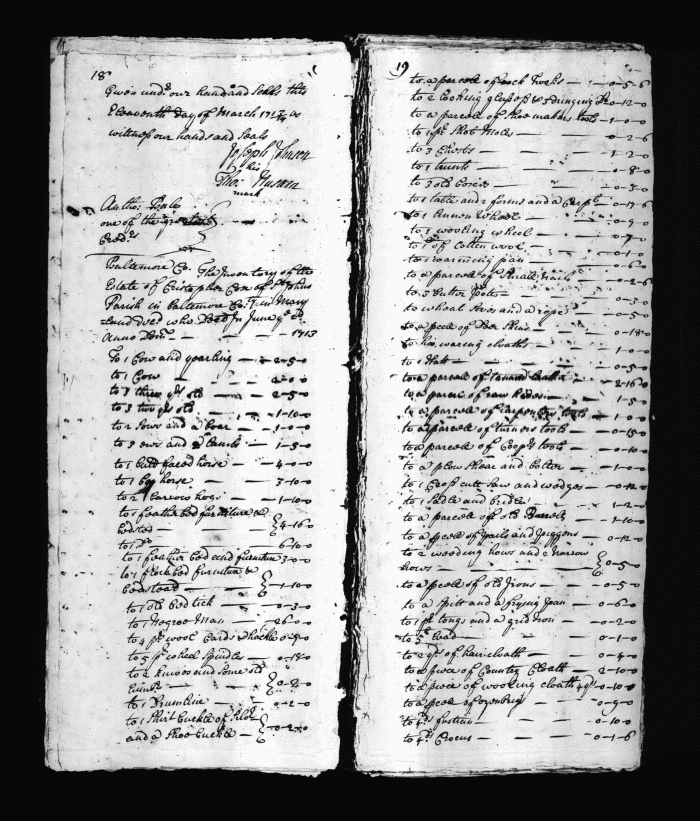 18
Given undr our hand and Seals this
Eleaventh day of March 171 as
witness our hands and Seals
Joseph Johnson
his
Tho: Husara
mark
Antho: Beale
one of the greatest
Credrs
Baltemore Co. The Inventory of the
Estate of Cristopher Cox of St Johns
Parish in Baltemore Co: in Mary
Land Dced who Died In June ye
Anno Domo — 1713
To 1 Cow and yearling — 2-5-0
to 1 Cow — 2-0-0
to 3 three yrs old — 2-5-0
to 3 two yrs old — 1-10-0
to 2 Sows and a boar — 1-0-0
to 3 ews and 2 Lambs — 1-5-0
to 1 bald faced horse — 4-0-0
to 1 bay horse — 3-10-0
to 2 barrow hogs — 1-10-0
to 1 feather bed furniture &
bedsted — 4-16-0
to 1 Do — 6-10-0
to 1 feather bed and furniture 3-0-0
to 1 flock bed furniture &
bedstead — 1-10-0
to 1 old bed tick — 0-3-0
to 1 Negroe Man — 26-0-0
to 4 pr wool Cards & hackle 0-9-0
to 5 pr wheel Spindles — 0-18-0
to 2 knives and some old
— 0-2-0
to 1 — 0-2-0
to 1 Shirt Buckle of Silvr
and a Shoe Buckle — 0-2-0
19
to a parcele of — 0-5-6
to 2 Looking glasses & 0-12-0
to a parcele of Shoe makers tools 1-0-0
to Shot Molds — 0-2-6
to 3 Chests — 1-2-0
to 1 trunk — 0-8-0
to 3 old boxes — 0-3-0
to 1 table and 2 forms and a Carpt — 0-17-6
to 1 Linnen Wheel — 0-9-0
to 1 wooling wheel — 0-7-0
to of Cotten wool — 0-1-0
to 1 pan — 0-6-0
to a parcele of Small — 0-2-6
to 3 Butter Potts — 0-3-0
to wheat Sives and a rope — 0-5-0
to a pcele of Deer Skins — 0-18-0
to his waring cloaths — 1-0-0
to 1 Hatt — 0-5-0
to a parcele of tannd Leather — 2-16-0
to a parcel of raw hides — 1-5-0
to a parcele of Carpenters tools — 1-0-0
to a parcele of turners tools — 0-15-0
to a parcele of Coops tools — 0-10-0
to a plow Shear and Colter — 1-0-0
to 1 Cross cutt Saw and wedges — 0-12-0
to 1 Sadle and bridle — 1-2-0
to a parcele of old — 1-10-0
to a pcele of Pails and Piggens — 0-12-0
to 2 weeding hows and 2 narrow
hows — 0-5-0
to a pcele of old Irons — 0-5-0
to a Spitt and a frying pan — 0-6-0
to 1 pr tongs and a gridiron — 0-2-0
to Lead — 0-1-0
to 2 yds of hair cloath — 0-4-0
to a piece of Country Cloath — 2-10-0
to a piece of wooling cloath 4 yds 0-10-0
to a pcele of ozenbrig — 0-9-0
to 4 yd fustin — 0-10-0
to 4 yd Crocus — 0-1-6